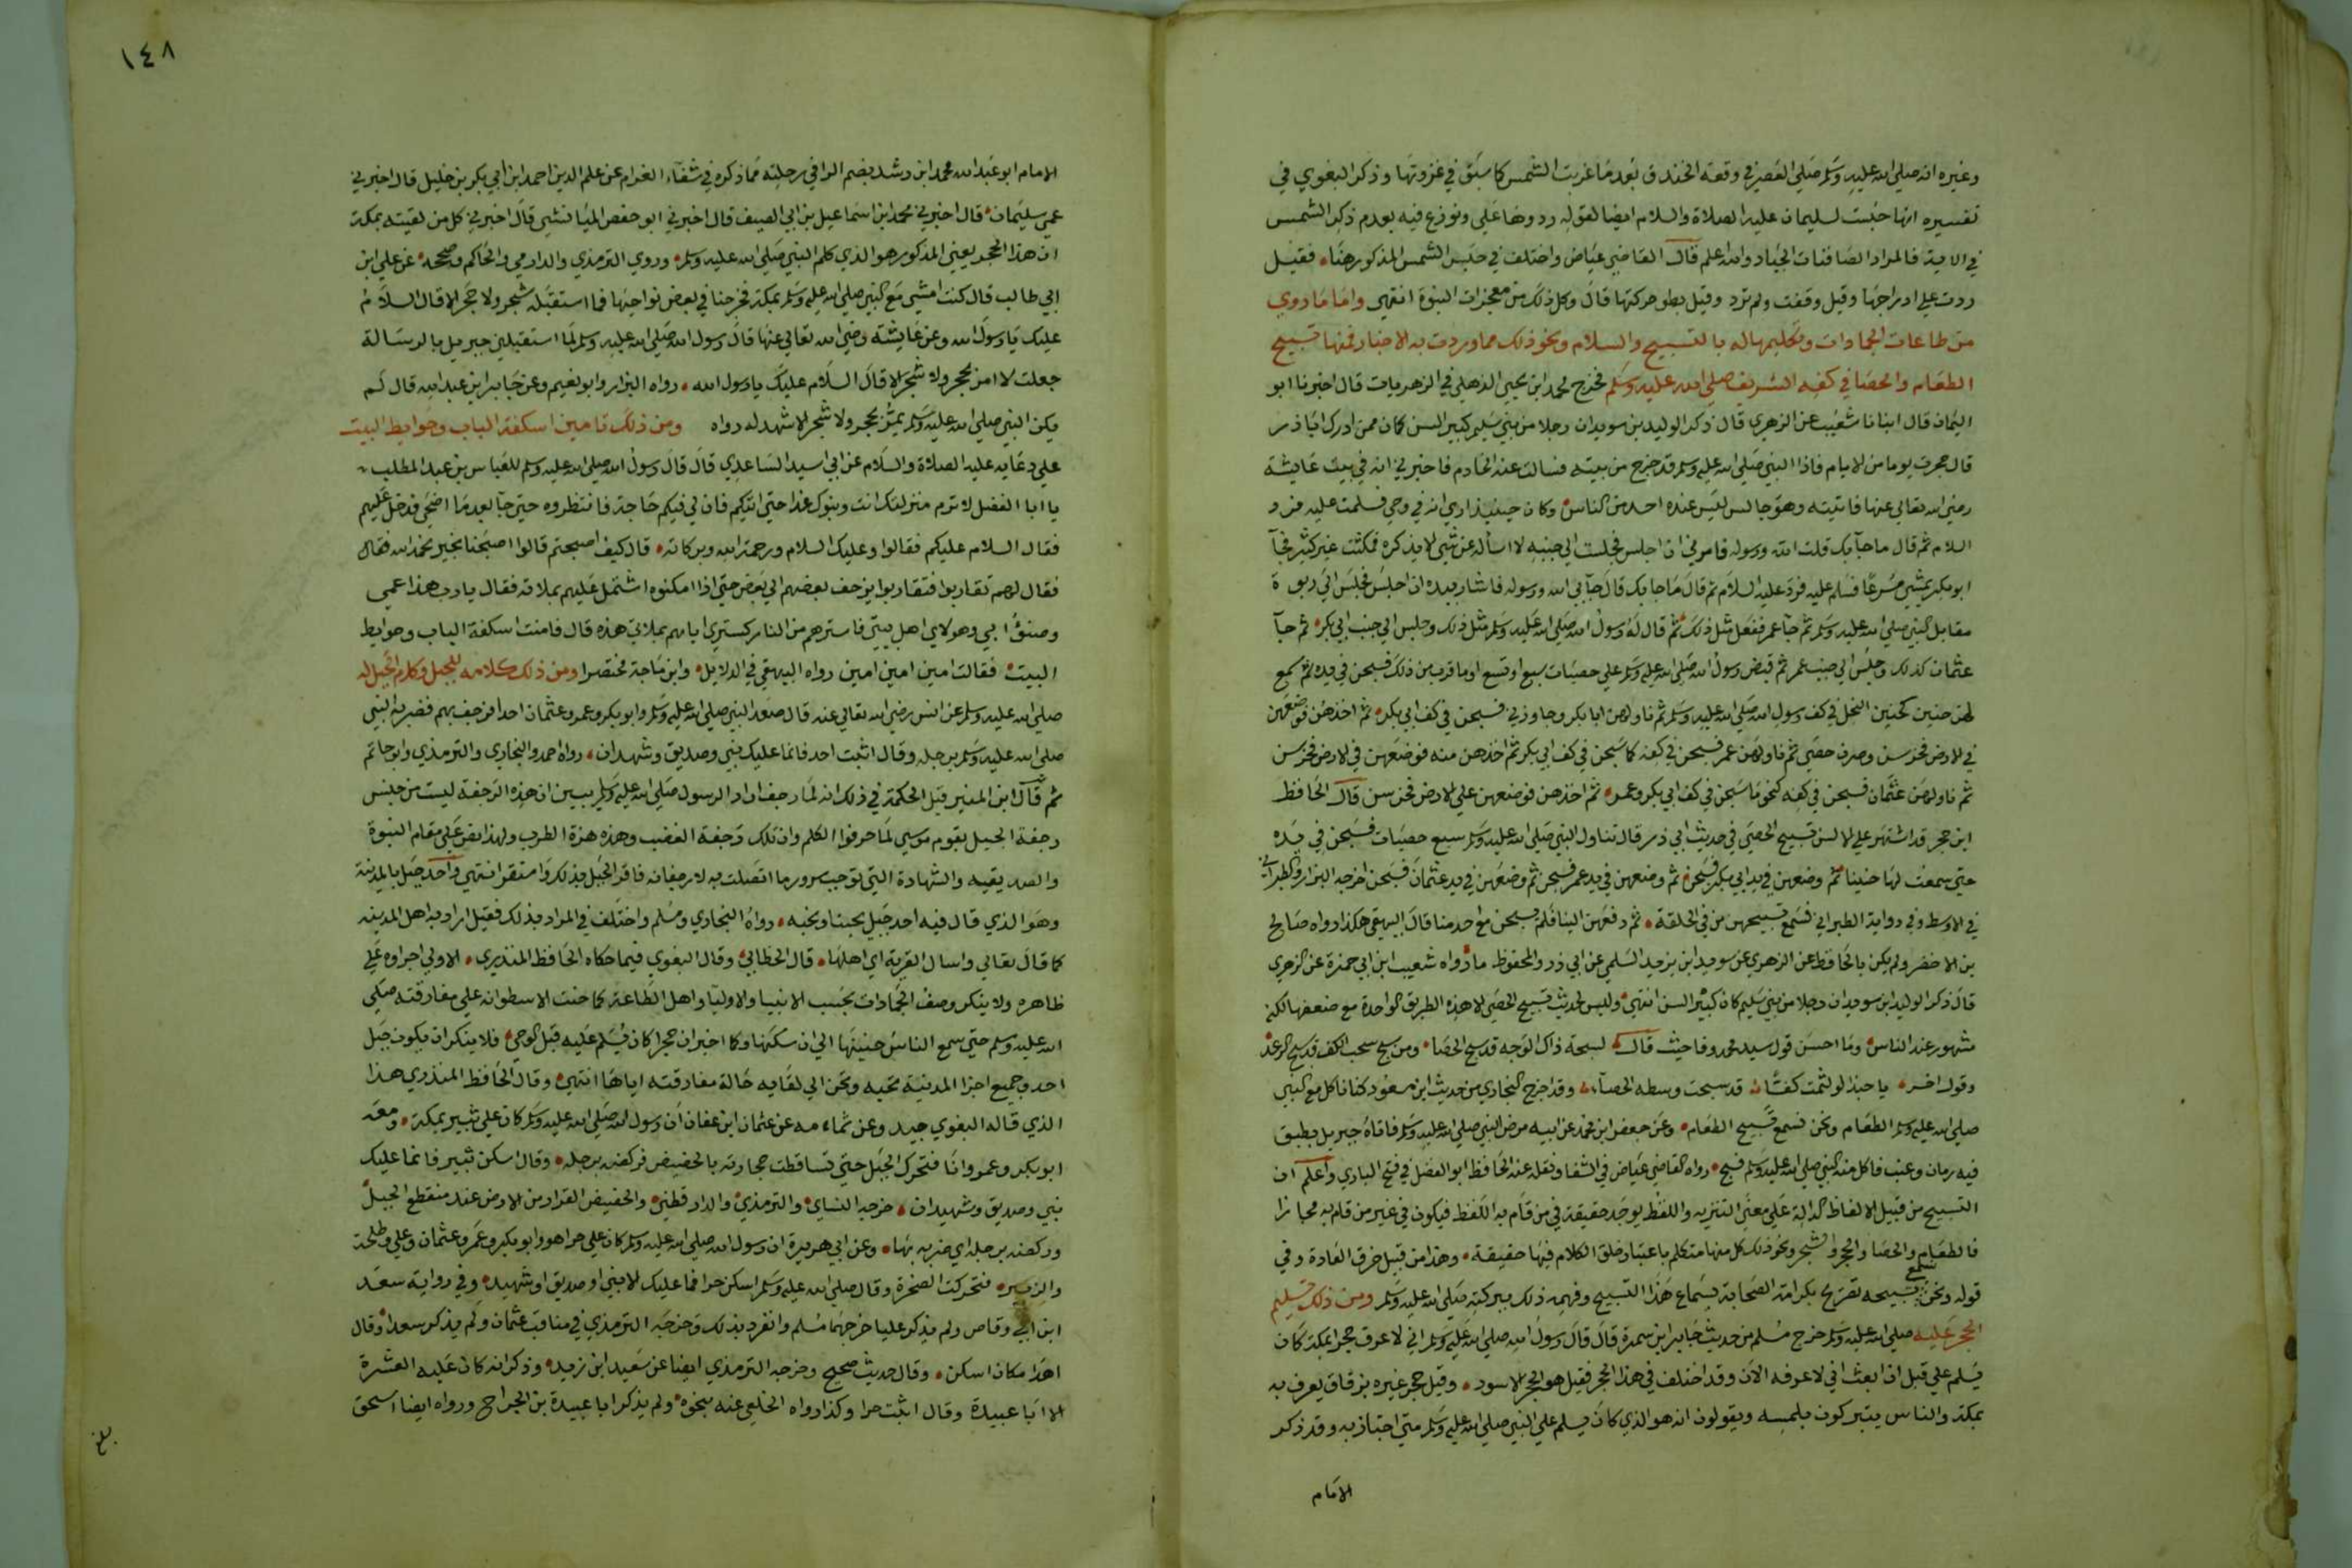 وغيره انه صلى الله عليه وسلم صلى العصر في وقعة الخندق بعد ما غربت الشمس كما سبق في غزوتها وذكر البغوي في
تفسيره انها حبست لسليمان عليه الصلاة والسلام ايضا لقوله ردوها على ونوزع فيه بعدم ذكر الشمس
في الاية فالمراد الصافنات الجياد والله اعلم قال القاضي عياض واختلف في حبس الشمس المذكور هنا فقيل
ردت على ادراجها وقيل وقفت ولم ترد وقيل بطو حركتها قال وكل ذلك من معجزات النبوة انتهى واما ما روي
من طاعات الجمادات وتكليمها له بالتسبيح والسلام ونحو ذلك مما وردت به الاخبار فمنها تسبيح
الطعام والحصا في كفه الشريف صلى الله عليه وسلم فخرج محمد ابن يحيى الذهلي في الزهريات قال اخبرنا ابو
اليمان قال انبانا شعيب عن الزهري قال ذكر الوليد بن سويد ان رجلا من بني سليم كبير السن كان ممن ادرك ابا ذر
قال هجرت يوما من الايام فاذا النبي صلى الله عليه وسلم قد خرج من بيته فسالت عنه الخادم فاخبرني انه في بيت عايشة
رضي الله تعالى عنها فاتيته وهو جالس ليس عنده احد من الناس وكان حينيذ ارى انه في وحي فسلمت عليه فرد
السلام ثم قال ما جآ بك قلت الله ورسوله فامرني ان اجلس فجلست الى جنبه لا اساله عن شي الا يذكره فمكثت غير كثير فجآ
ابو بكر يمشي مسرعا فسلم عليه فرد عليه السلام ثم قال ما جا بك قال جآ بي الله ورسوله فاشار بيده ان اجلس فجلس الى ربوة
مقابل النبي صلى الله عليه وسلم ثم جآ عمر ففعل مثل ذلك ثم قال له رسول الله صلى الله عليه وسلم مثل ذلك وجلس الى جنب ابي بكر ثم جآ
عثمان كذلك وجلس الى جنب عمر ثم قبض رسول الله صلى الله عليه وسلم على حصيات سبع او تسع او ما قرب من ذلك فسبحن في يده ثم سمع
لهن حنين كحنين النحل في كف رسول الله صلى الله عليه وسلم ثم ناولهن ابا بكر وجاوزني فسبحن في كف ابي بكر ثم اخذهن فوضعهن
في الارض فخرسن وصرن حصى ثم ناولهن عمر فسبحن في كفه كما سبحن في كف ابي بكر ثم اخذهن منه فوضعهن في الارض فخرسن
ثم ناولهن عثمان فسبحن في كفه كنحو ما سبحن في كف ابي بكر وعمر ثم اخذهن فوضعهن على الارض فخرسن قال الحافظ
ابن حجر قد اشتهر على الالسن تسبيح الحصى في حديث ابي ذر قال تناول النبي صلى الله عليه وسلم سبع حصيات فسبحن في يده
حتى سمعت لها حنينا ثم وضعهن في يد ابي بكر فسبحن ثم وضعهن في يد عمر فسبحن ثم وضعهن في يد عثمان فسبحن اخرجه البزار والطبراني
في الاوسط وفي رواية الطبراني فسمع تسبيحهن من في الحلقة ثم دفعهن الينا فلم يسبحن مع احد منا قال البيهقي هكذا رواه صالح
بن الاخضر ولم يكن بالحافظ عن الزهري عن سويد ابن يزيد السلمي عن ابي ذر والمحفوظ ما رواه شعيب ابن ابي حمزة عن الزهري
قال ذكر الوليد ابن سويد ان رجلا من بني سليم كان كبير السن انتهى وليس لحديث تسبيح الحصى الا هذه الطريق الواحدة مع ضعفها لكنه
مشهور عند الناس وما احسن قول سيد محمد وفا حيث قال لسبحة ذاك الوجه قد سبح الحصا ومن سح سحب الكف قد سبح الرعد
وقول اخر يا حبذا لو لثمت كفا قد سبحت وسطه الحصآ وقد اخرج البخاري من حديث ابن مسعود كنا ناكل مع النبي
صلى الله عليه وسلم الطعام ونحن نسمع تسبيح الطعام وعن جعفر ابن محمد عن ابيه مرض النبي صلى الله عليه وسلم فاتاه جبريل بطبق
فيه رمان وعنب فاكل منه النبي صلى الله عليه وسلم فسبح رواه القاضي عياض في الشفا ونقله عنه الحافظ ابو الفضل في فتح الباري واعلم ان
التسبيح من قبيل الالفاظ الدالة على معنى التنزيه واللفظ يوجد حقيقة في من قام به اللفظ فيكون في غير من قام به مجازا
فالطعام والحصا والحجر والشجر ونحو ذلك كل منها متكلم باعتبار خلق الكلام فيها حقيقة وهذا من قبيل خرق العادة وفي
قوله ونحن نسمع تسبيحه تصريح بكرامة الصحابة بسماع هذا التسبيح وفهمه ذلك ببركته صلى الله عليه وسلم ومن ذلك تسليم
الحجر عليه صلى الله عليه وسلم خرج مسلم من حديث جابر ابن سمرة قال قال رسول الله صلى الله عليه وسلم اني لاعرف حجرا بمكة كان
يسلم على قبل ان ابعث اني لاعرفه الان وقد اختلف في هذا الحجر فقيل هو الحجر الاسود وقيل حجر غيره بزقاق يعرف به
بمكة والناس يتبركون بلمسه ويقولون انه هو الذي كان يسلم على النبي صلى الله عليه وسلم متى اجتاز به وقد ذكر
الامام
١٤٨
الامام ابو عبد الله محمد ابن رشد بضم الرا في رحلته مما ذكره في شفآء الغرام عن علم الدين احمد ابن ابي بكر بن خليل قال اخبرني
عمي سليمان قال اخبرني محمد ابن اسماعيل بن ابي الصيف قال اخبرني ابو حفص الميانشي قال اخبرني كل من لقيته بمكة
ان هذا الحجر يعني المذكور هو الذي كلم النبي صلى الله عليه وسلم وروي الترمذي والدارمي والحاكم وصححه عن علي ابن
ابي طالب قال كنت امشي مع النبي صلى الله عليه وسلم بمكة فخرجنا في بعض نواحيها فما استقبله شجر ولا حجر الا قال السلام
عليك يا رسول الله وعن عايشة رضي الله تعالى عنها قال رسول الله صلى الله عليه وسلم لما استقبلني جبريل بالرسالة
جعلت لا امر بحجر ولا شجر الا قال السلام عليك يا رسول الله رواه البزار وابو نعيم وعن جابر ابن عبد الله قال لم
يكن النبي صلى الله عليه وسلم يمر بحجر ولا شجر الا شهد له رواه ومن ذلك تامين اسكفة الباب وحوايط البيت
على دعايه عليه الصلاة والسلام عن ابي اسيد الساعدي قال قال رسول الله صلى الله عليه وسلم للعباس بن عبد المطلب
يا ابا الفضل لا ترم منزلك انت وبنوك غدا حتى اتيكم فان لي فيكم حاجة فانتظروه حتى جآ بعد ما اضحى فدخل عليهم
فقال السلام عليكم فقالوا وعليك السلام ورحمة الله وبركاته قال كيف اصبحتم قالوا اصبحنا بخير نحمد الله فقال
فقال لهم تقاربوا فتقاربوا يزحف بعضهم الى بعض حتى اذا امكنوه اشتمل عليهم بملاته فقال يا رب هذا عمي
وصنو ابي وهولاي اهل بيتي فاسترهم من النار كستري اياهم بملاتي هذه قال فامنت اسكفة الباب وحوايط
البيت فقالت امين امين امين رواه البيهقي في الدلايل وابن ماجة مختصرا ومن ذلك كلامه للجبل وكلام الجبل له
صلى الله عليه وسلم عن انس رضي الله تعالى عنه قال صعد النبي صلى الله عليه وسلم وابو بكر وعمر وعثمان احدا فرجف بهم فضربه النبي
صلى الله عليه وسلم برجله وقال اثبت احد فانما عليك نبي وصديق وشهيدان رواه احمد والبخاري والترمذي وابو حاتم
ثم قال ابن المنير قيل الحكمة في ذلك انه لما رجف اراد الرسول صلى الله عليه وسلم يبين ان هذه الرجفة ليست من جنس
رجفة الجبل بقوم موسى لما حرفوا الكلم وان تلك رجفة الغضب وهذه هزة الطرب ولهذا نص على مقام النبوة
والصديقيه والشهادة التي توجب سرور ما اتصلت به لا رجفانه فاقر الجبل بذلك وامتقر انتهى واحد جبل بالمدينة
وهو الذي قال فيه احد جبل يحبنا ونحبه رواه البخاري ومسلم واختلف في المراد بذلك فقيل اراد به اهل المدينه
كما قال تعالى واسال القرية اي اهلها قال الخطابي وقال البغوي فيما حكاه الحافظ المنذري الاولى اجراوه على
ظاهره ولا ينكر وصف الجمادات بحسب الانبيا والاوليا واهل الطاعة كما حنت الاسطوانه على مفارقته صلى
الله عليه وسلم حتى سمع الناس حنينها الى ان سكنها وكما اخبر ان حجرا كان يسلم عليه قبل الوحي فلا ينكر ان يكون جبل
احد وجميع اجزا المدينة تحبه وتحن الى لقايه حالة مفارقته اياها انتهى وقال الحافظ المنذري هذا
الذي قاله البغوي جيد وعن ثمامه عن عثمان ابن عفان ان رسول الله صلى الله عليه وسلم كان على ثبير بمكة ومعه
ابو بكر وعمر وانا فتحرك الجبل حتى تساقطت حجارته بالحضيض فركضه برجله وقال اسكن ثبير فانما عليك
نبي وصديق وشهيدان خرجه النساي والترمذي والدارقطني والحضيض القرار من الارض عند منقطع الجبل
وركضه برجله اي ضربه بها وعن ابي هريرة ان رسول الله صلى الله عليه وسلم كان على حرا هو وابو بكر وعمر وعثمان وعلي وطلحة
والزبير فتحركت الصخرة وقال صلى الله عليه وسلم اسكن حرا فما عليك الا نبي او صديق او شهيد وفي رواية سعد
ابن ابي وقاص ولم يذكر عليا خرجهما مسلم وانفرد بذلك وخرجه الترمذي في مناقب عثمان ولم يذكر سعدا وقال
اهدا مكان اسكن وقال حديث صحيح وخرجه الترمذي ايضا عن سعيد ابن زيد وذكر انه كان عليه العشرة
الا ابا عبيدة وقال اثبت حرا وكذا رواه الخلعي عنه بنحوه ولم يذكر ابا عبيدة بن الجراح ورواه ايضا اسحق
بلغ